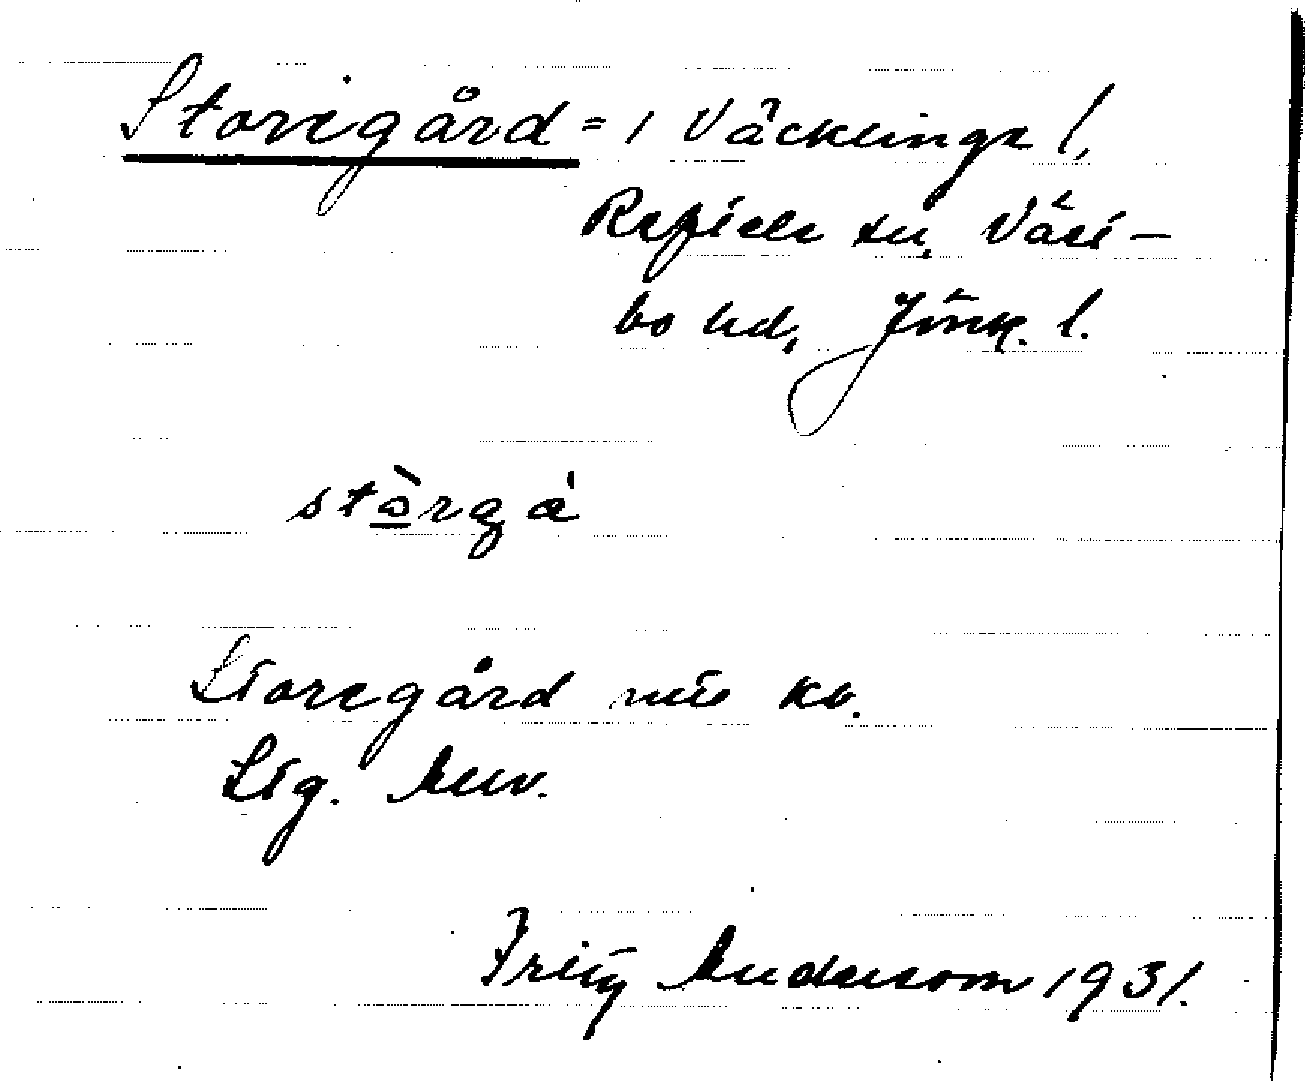 Storegård = 1 Väcklinge l,
Reftele sn, Väst-
bo hd, Jönk. l.
stòrgá
Storegård kv.
Anv.
Fritz Anderson 1931.